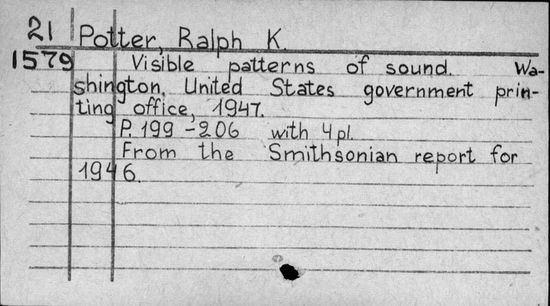 21 Potter, Ralph K.
1579 Visible patterns of sound. Wa-
shington, United States government prin-
ting office, 1947.
P. 199-206 with 4 pl.
From the Smithsonian report for
1946.